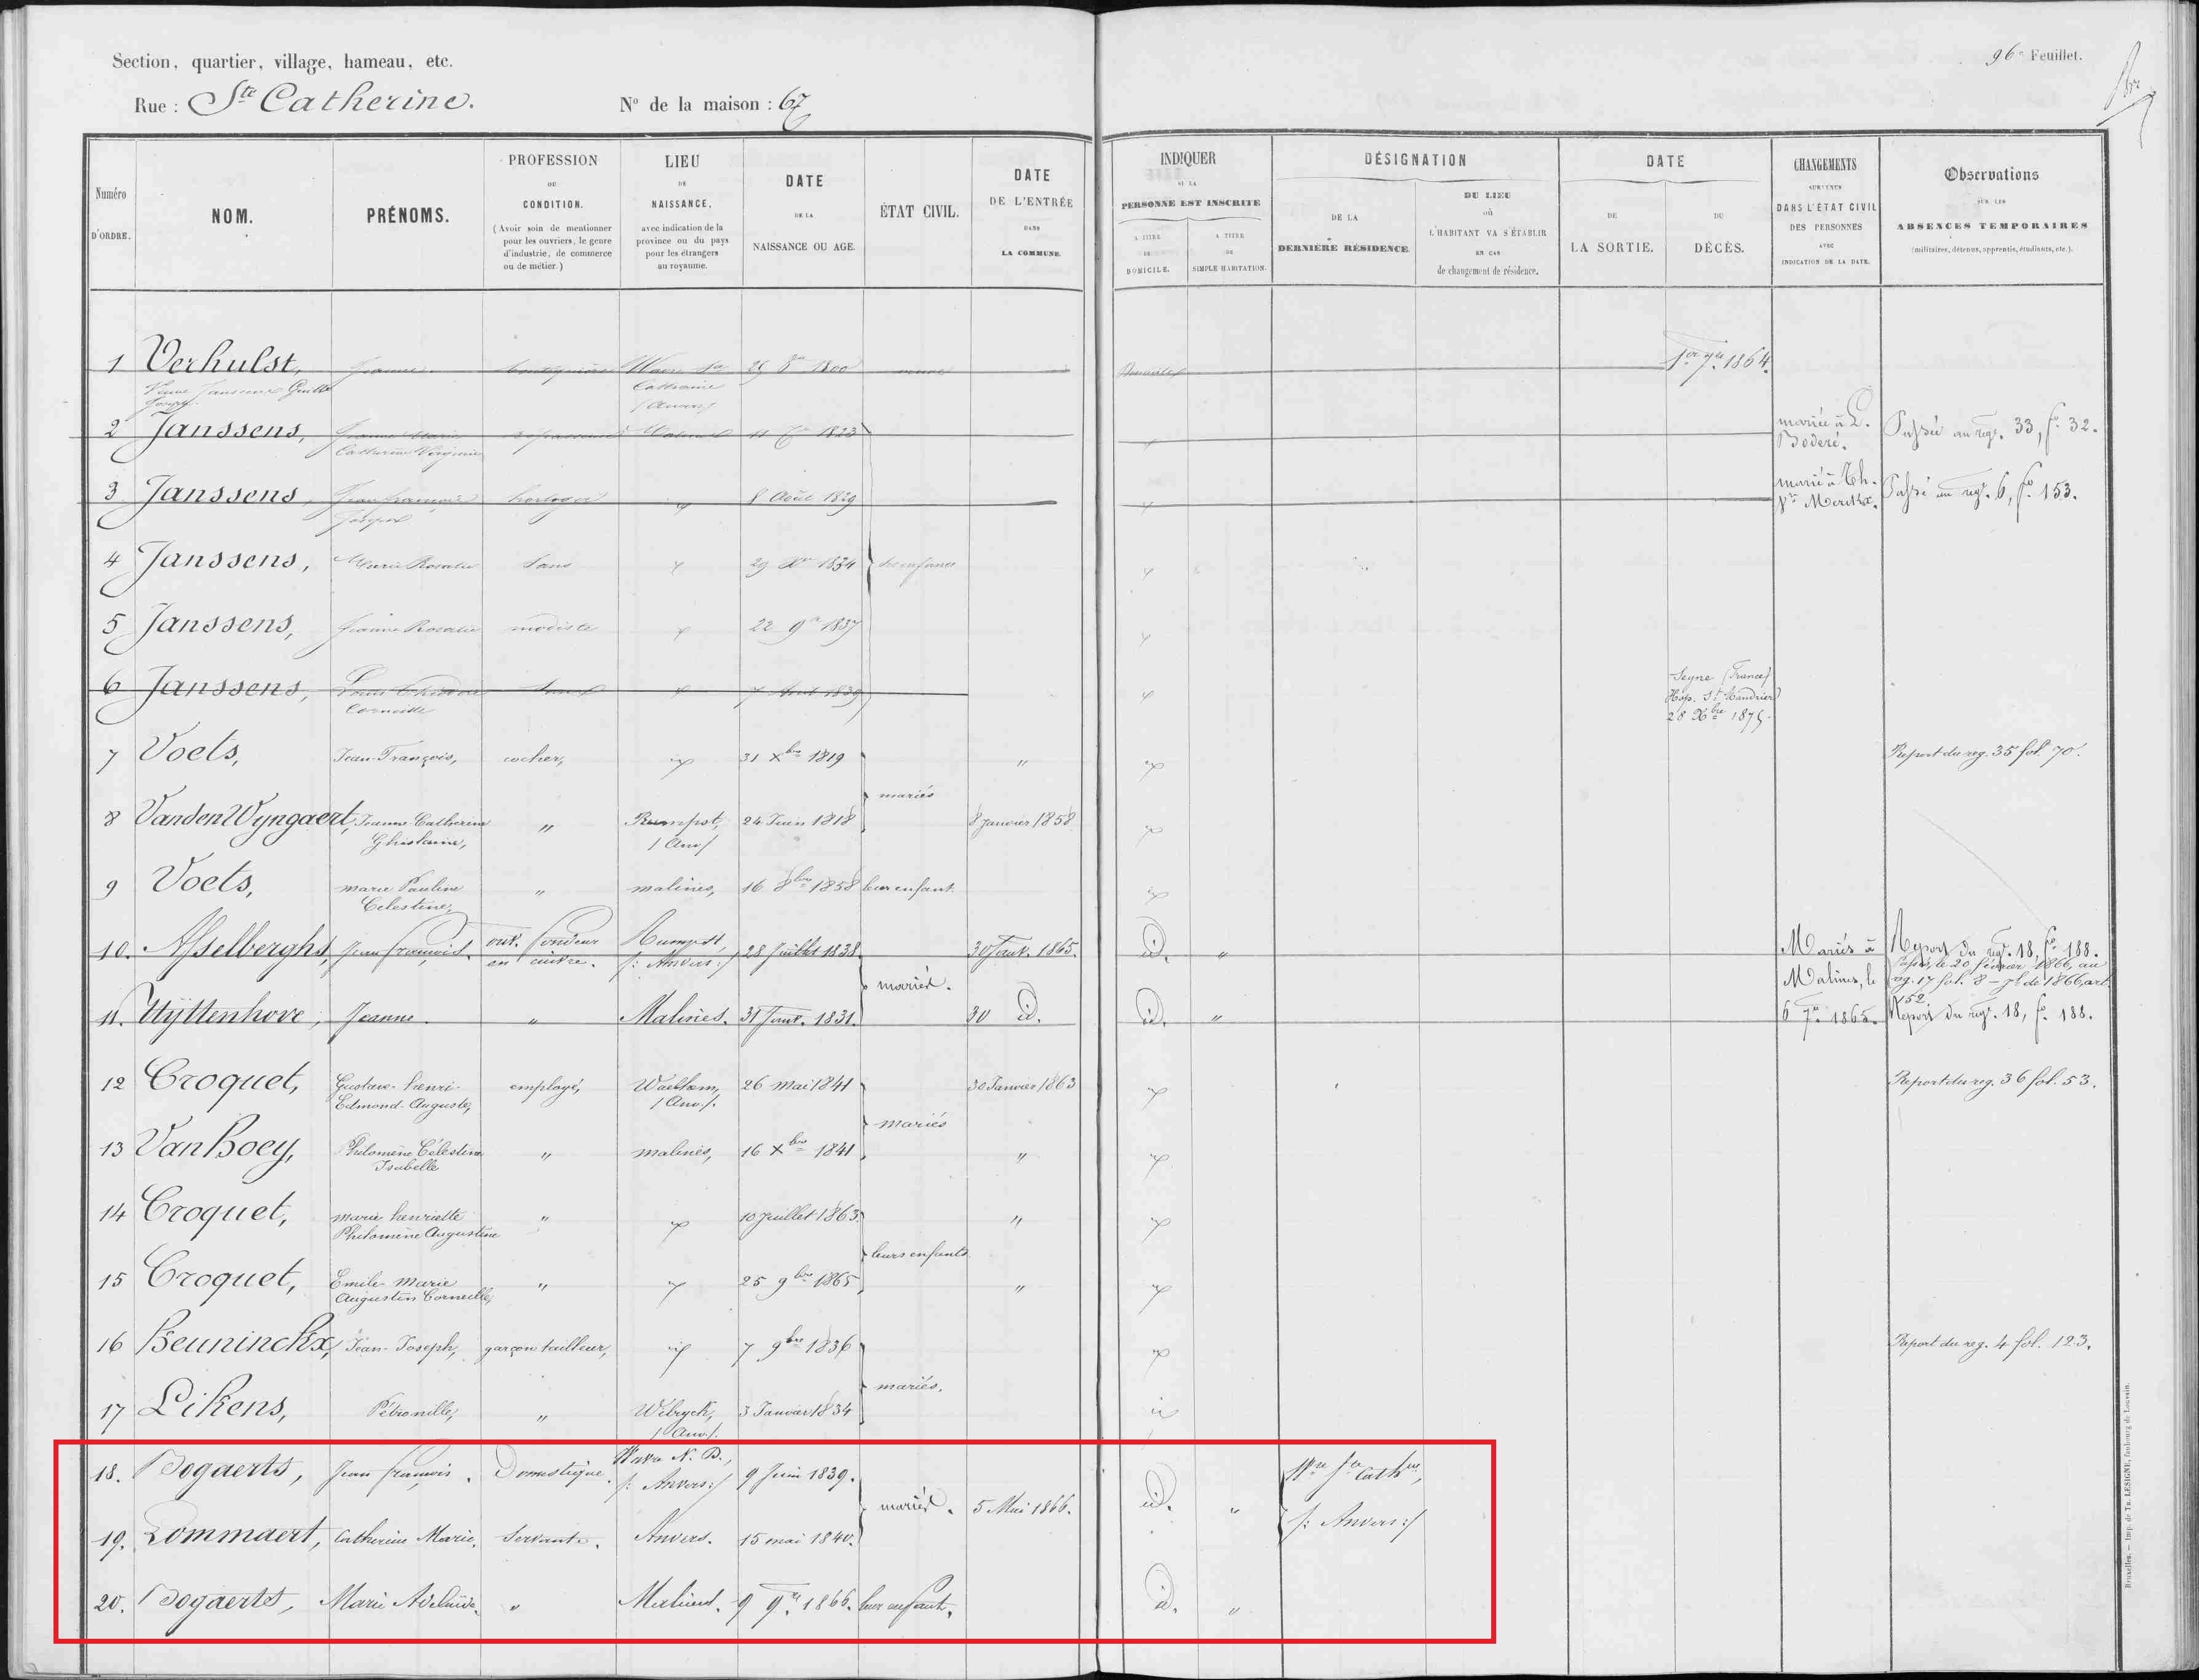 Section, quartier, village, hameau, etc.
Rue : Ste Catherine. No de la maison : 67
96e Feuillet.
Numéro D'ORDRE.
NOM.
PRÉNOMS.
PROFESSION OU CONDITION.
(Avoir soin de mentionner pour les ouvriers, le genre d'industrie, de commerce ou de métier.)
LIEU DE NAISSANCE,
avec indication de la province ou du pays pour les étrangers au royaume.
DATE DE LA NAISSANCE OU AGE.
ÉTAT CIVIL.
DATE DE L'ENTRÉE DANS LA COMMUNE.
INDIQUER SI LA PERSONNE EST INSCRITE
A TITRE DE DOMICILE.
A TITRE DE SIMPLE HABITATION.
DÉSIGNATION
DE LA DERNIÈRE RÉSIDENCE.
DU LIEU où L'HABITANT VA S'ÉTABLIR EN CAS de changement de résidence.
DATE
DE LA SORTIE.
DU DÉCÈS.
CHANGEMENTS SURVENUS DANS L'ÉTAT CIVIL DES PERSONNES AVEC INDICATION DE LA DATE.
Observations SUR LES ABSENCES TEMPORAIRES
(militaires, détenus, apprentis, étudiants, etc.).
1 Verhulst, Jeanne boutiquière Waver Ste 29 8bre 1800 veuve Domicile 1er 7bre 1864.
Veuve Janssens Guill. Catherine
Joseph (Anvers)
2 Janssens, Jeanne Marie Malines 1823 mariée à L. Passée au regre. 33, fo. 32.
Catherine Virginie Boderé.
3 Janssens, Jean François horloger " 8 Août 1829 marié à Th. Passé au regre. 6, fo. 153.
Joseph Merckx.
4 Janssens, Marie Rosalie Sans " 29 Xbre 1834 ses enfants
5 Janssens, Jeanne Rosalie modiste " 22 9re 1837
6 Janssens, Louis Théodore " 7 Août 1839 Seyne (France)
Corneille Hop. St. Mandrier
28 Xbre 1875.
7 Voets, Jean-François, cocher, " 31 Xbre 1819 " " Report du reg. 35 fol. 70.
mariés
8 Vanden Wyngaert, Jeanne Catherine " Rumpst, 24 Juin 1818 8 Janvier 1858 "
Ghislaine, (Anv.)
9 Voets, marie Pauline " malines, 16 8bre 1858 leur enfant. "
Celestine,
10. Asselberghs, Jean François. ouv. fondeur Rumpst, 28 Juillet 1838. 30 Janv. 1865. id. " Mariés à Report du regre. 18, fo. 188.
en cuivre. (: Anvers :) Passé, le 20 février 1866, au
mariés. Malines, le reg. 17 fol. 8 – de 1866, art.
52.
11. Uÿttenhove, Jeanne. " Malines. 31 Janv. 1831. 30 id. id. " 6 7re 1865. Report du regre. 18, fo. 188.
12 Croquet, Gustave-henri- employé, Waelhem, 26 mai 1841 30 Janvier 1863 " Report du reg. 36 fol. 53.
Edmond-Auguste, (Anv.).
mariés
13 Van Boey, Philomène Célestine " malines, 16 Xbre 1841 " "
Isabelle
14 Croquet, marie henriette " " 10 Juillet 1863 " "
Philomène Augustine
leurs enfants
15 Croquet, Emile marie " " 25 9bre 1865 " "
Augustin Corneille,
16 Beuninckx, Jean-Joseph, garçon tailleur, " 7 9bre 1836 " Report du reg. 4 fol. 123.
mariés.
17 Likens, Pétronille, " Wilryck, 3 Janvier 1834 "
(Anv.).
18. Bogaerts, Jean François. Domestique. Wavre N. D., 9 Juin 1839. id. Wre Ste Cathne,
(: Anvers :)
mariés. 5 Mai 1866. " (: Anvers :)
19. Lommaert, Catherine Marie. Servante. Anvers. 15 mai 1840.
20. Bogaerts, Marie Adelaïde. " Malines. 9 9re 1866. leur enfant. id. "
Bruxelles. — Imp. de Th. LESIGNE, faubourg de Louvain.